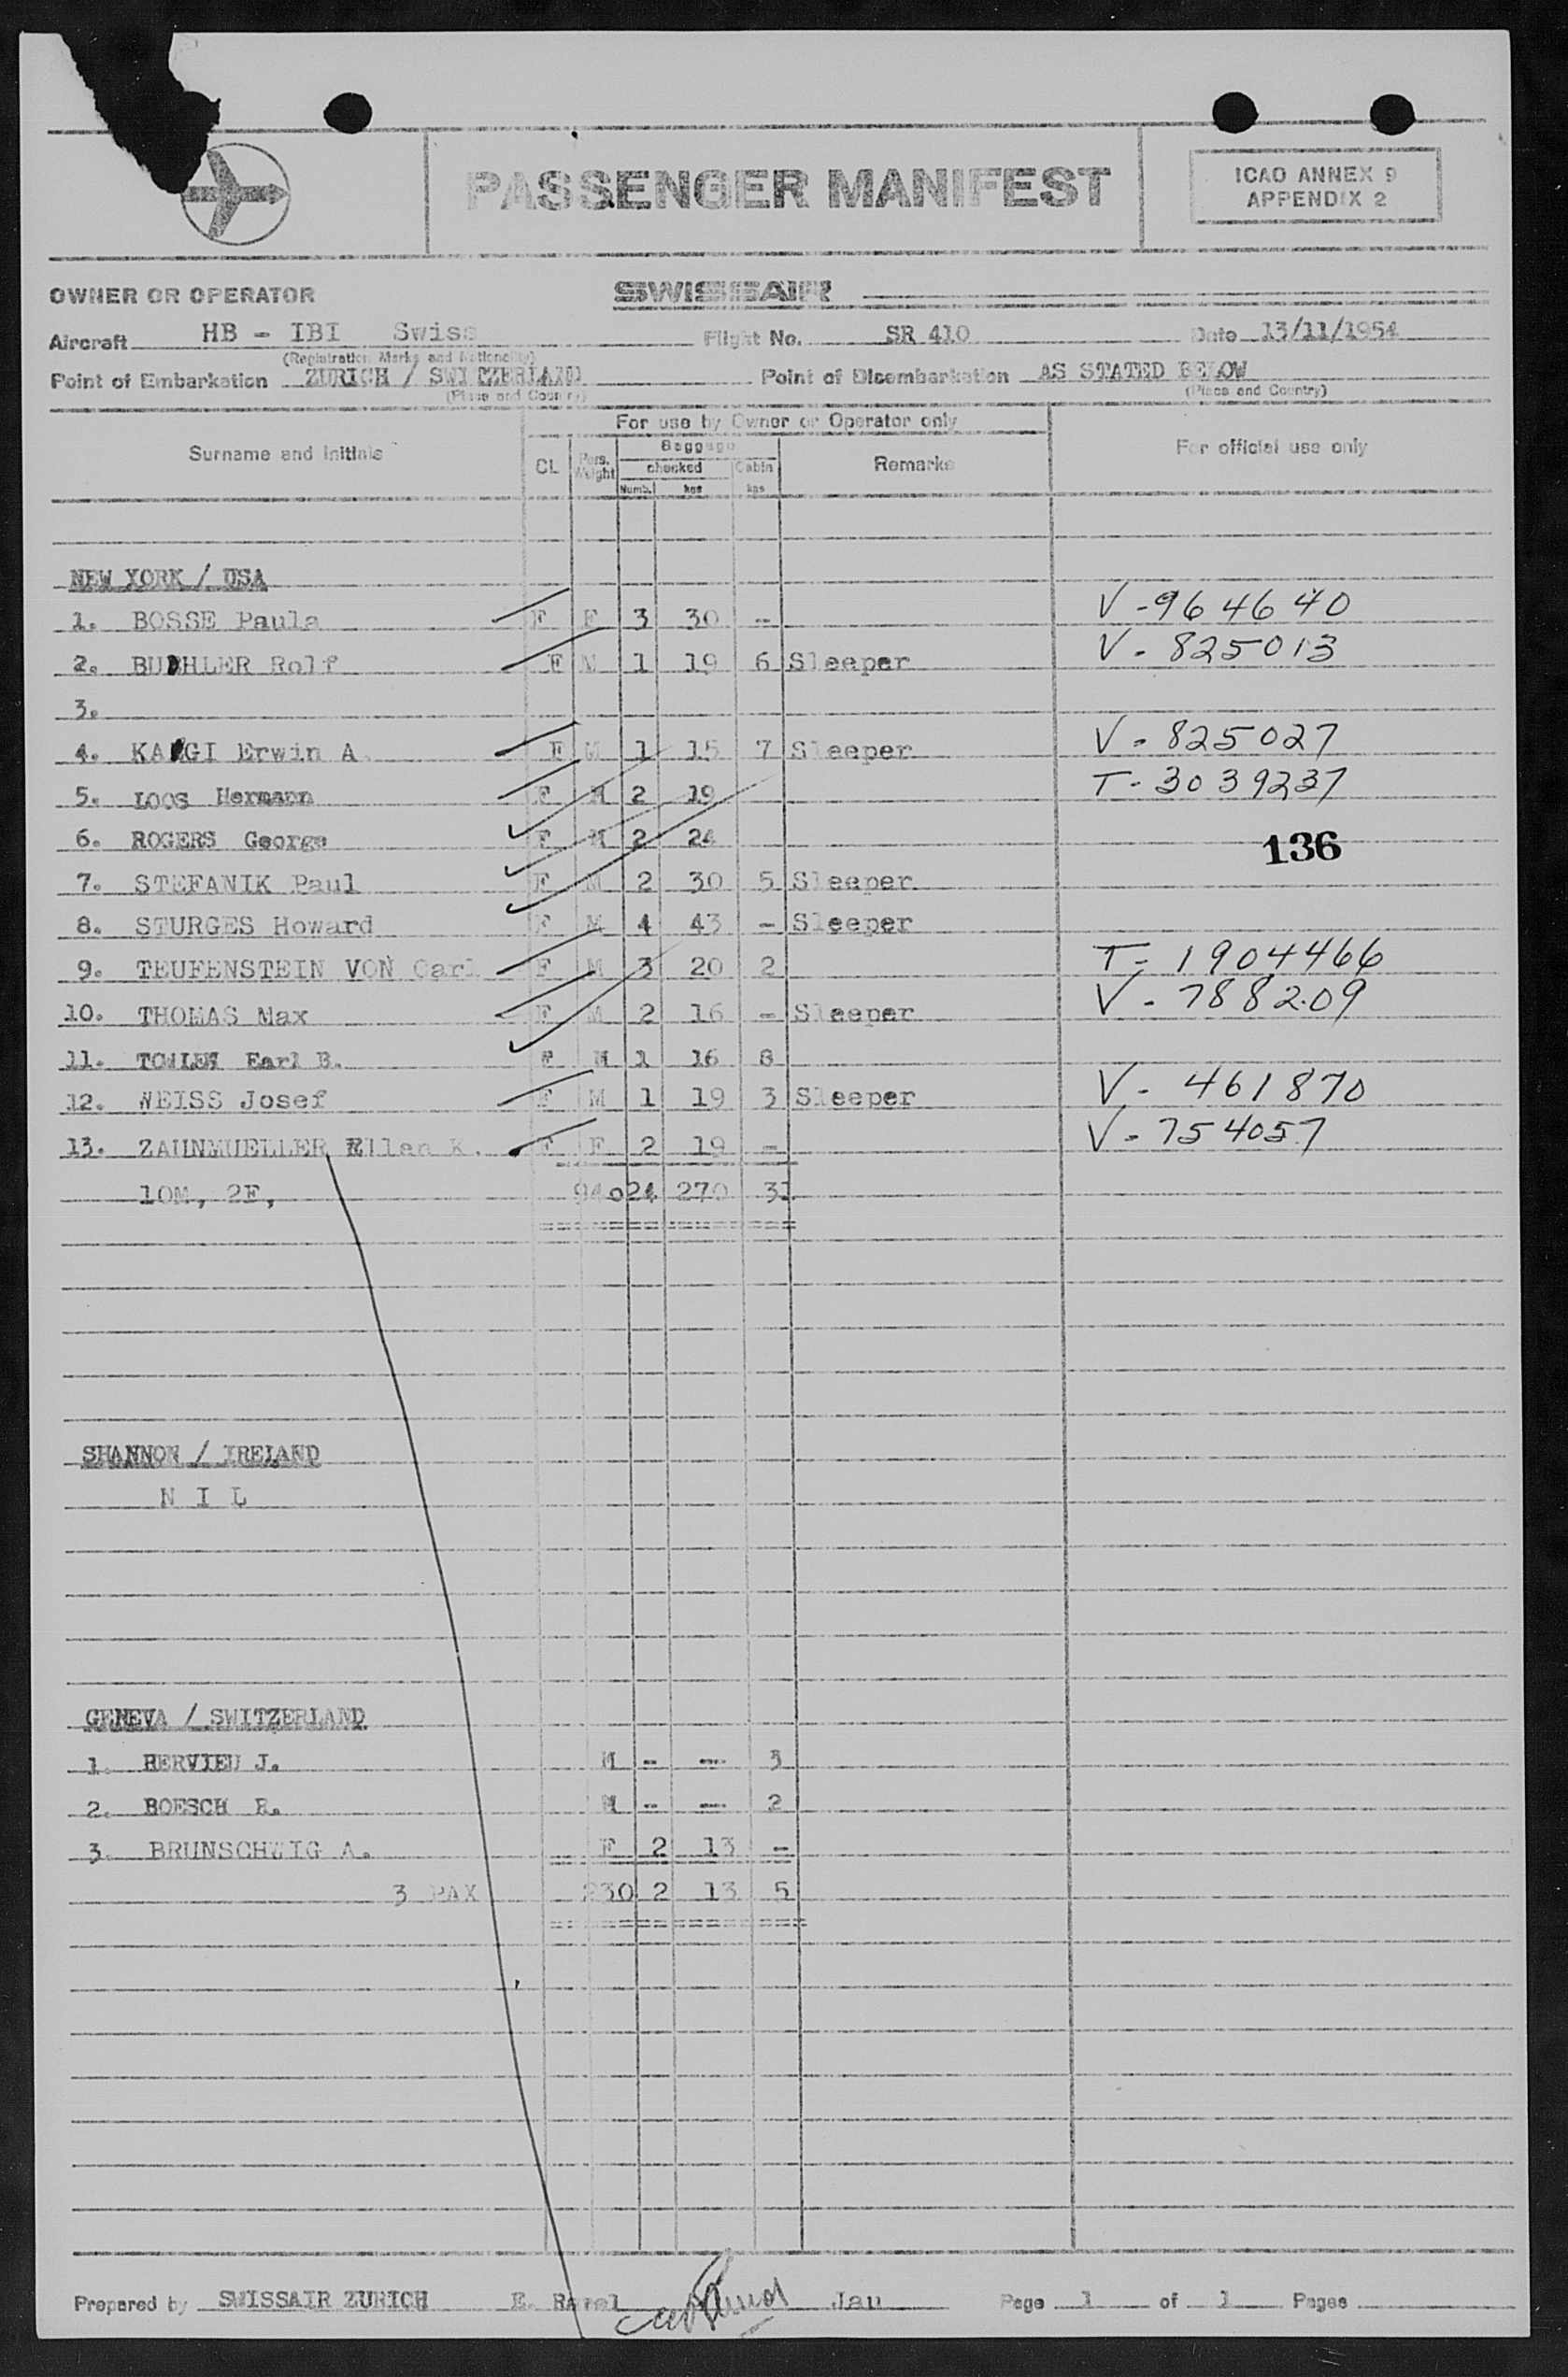 PASSENGER MANIFEST
ICAO ANNEX 9
APPENDIX 2
OWNER OR OPERATOR SWISSAIR
Aircraft HB - IBI Swiss Flight No. SR 410 Date 13/11/1954
(Registration Marks and Nationality)
Point of Embarkation ZURICH / SWITZERLAND Point of Disembarkation AS STATED BELOW
(Place and Country) (Place and Country)
For use by Owner or Operator only
Surname and Initials CL Pers. Weight Baggage checked Numb. kgs Cabin kgs Remarks For official use only
NEW YORK / USA
1. BOSSE Paula F F 3 30 - V-964640
2. BUEHLER Rolf F M 1 19 6 Sleeper V-825013
3.
4. KAEGI Erwin A. F M 1 15 7 Sleeper V-825027
5. LOOS Hermann F M 2 19 T-3039237
6. ROGERS George F M 2 24
136
7. STEFANIK Paul F M 2 30 5 Sleeper
8. STURGES Howard F M 4 43 - Sleeper
9. TEUFENSTEIN VON Carl F M 3 20 2 T-1904466
10. THOMAS Max F M 2 16 - Sleeper V-788209
11. Earl B. F M 1 16 8
12. WEISS Josef F M 1 19 3 Sleeper V-461870
13. ZAUNMUELLER Ellen K. F F 2 19 - V-754057
10M, 2F, 940 24 270 31
SHANNON / IRELAND
N I L
GENEVA / SWITZERLAND
1. HERVIEU J. M - -- 3
2. BOESCH R. M - -- 2
3. BRUNSCHWIG A. F 2 13 -
3 PAX 230 2 13 5
Prepared by SWISSAIR ZURICH E. Jau Page 1 of 1 Pages